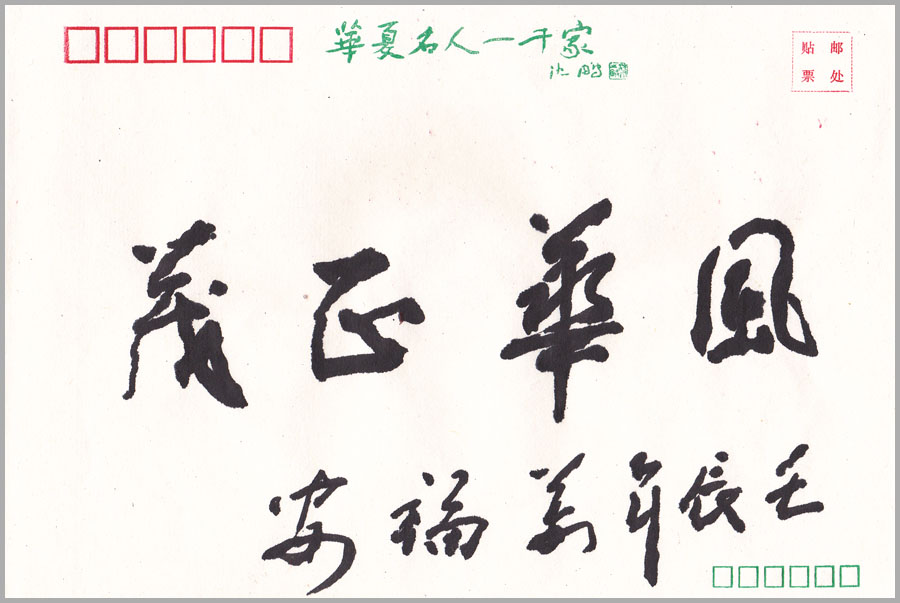 華夏名人一千家
沈鹏
贴邮
票处
風華正茂
壬辰年 福安